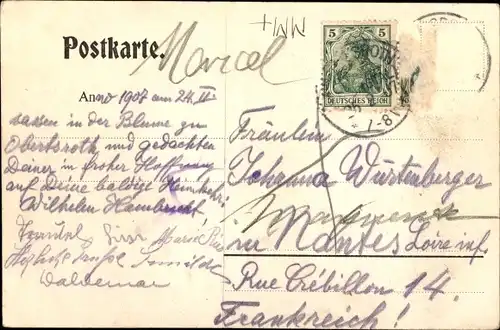 Postkarte.
Marcel
5 5
DEUTSCHES REICH
7-8
Anno 1907 am 24. II
sassen in der Blume zu
Obertsroth und gedachten
Deiner in froher Hoffnung
auf Deine baldige Heimkehr:
Wilhelm
Marie
Waldemar
Fräulein
Johanna Würtenberger
in Nantes Loire inf.
Rue Crébillon 14.
Frankreich!